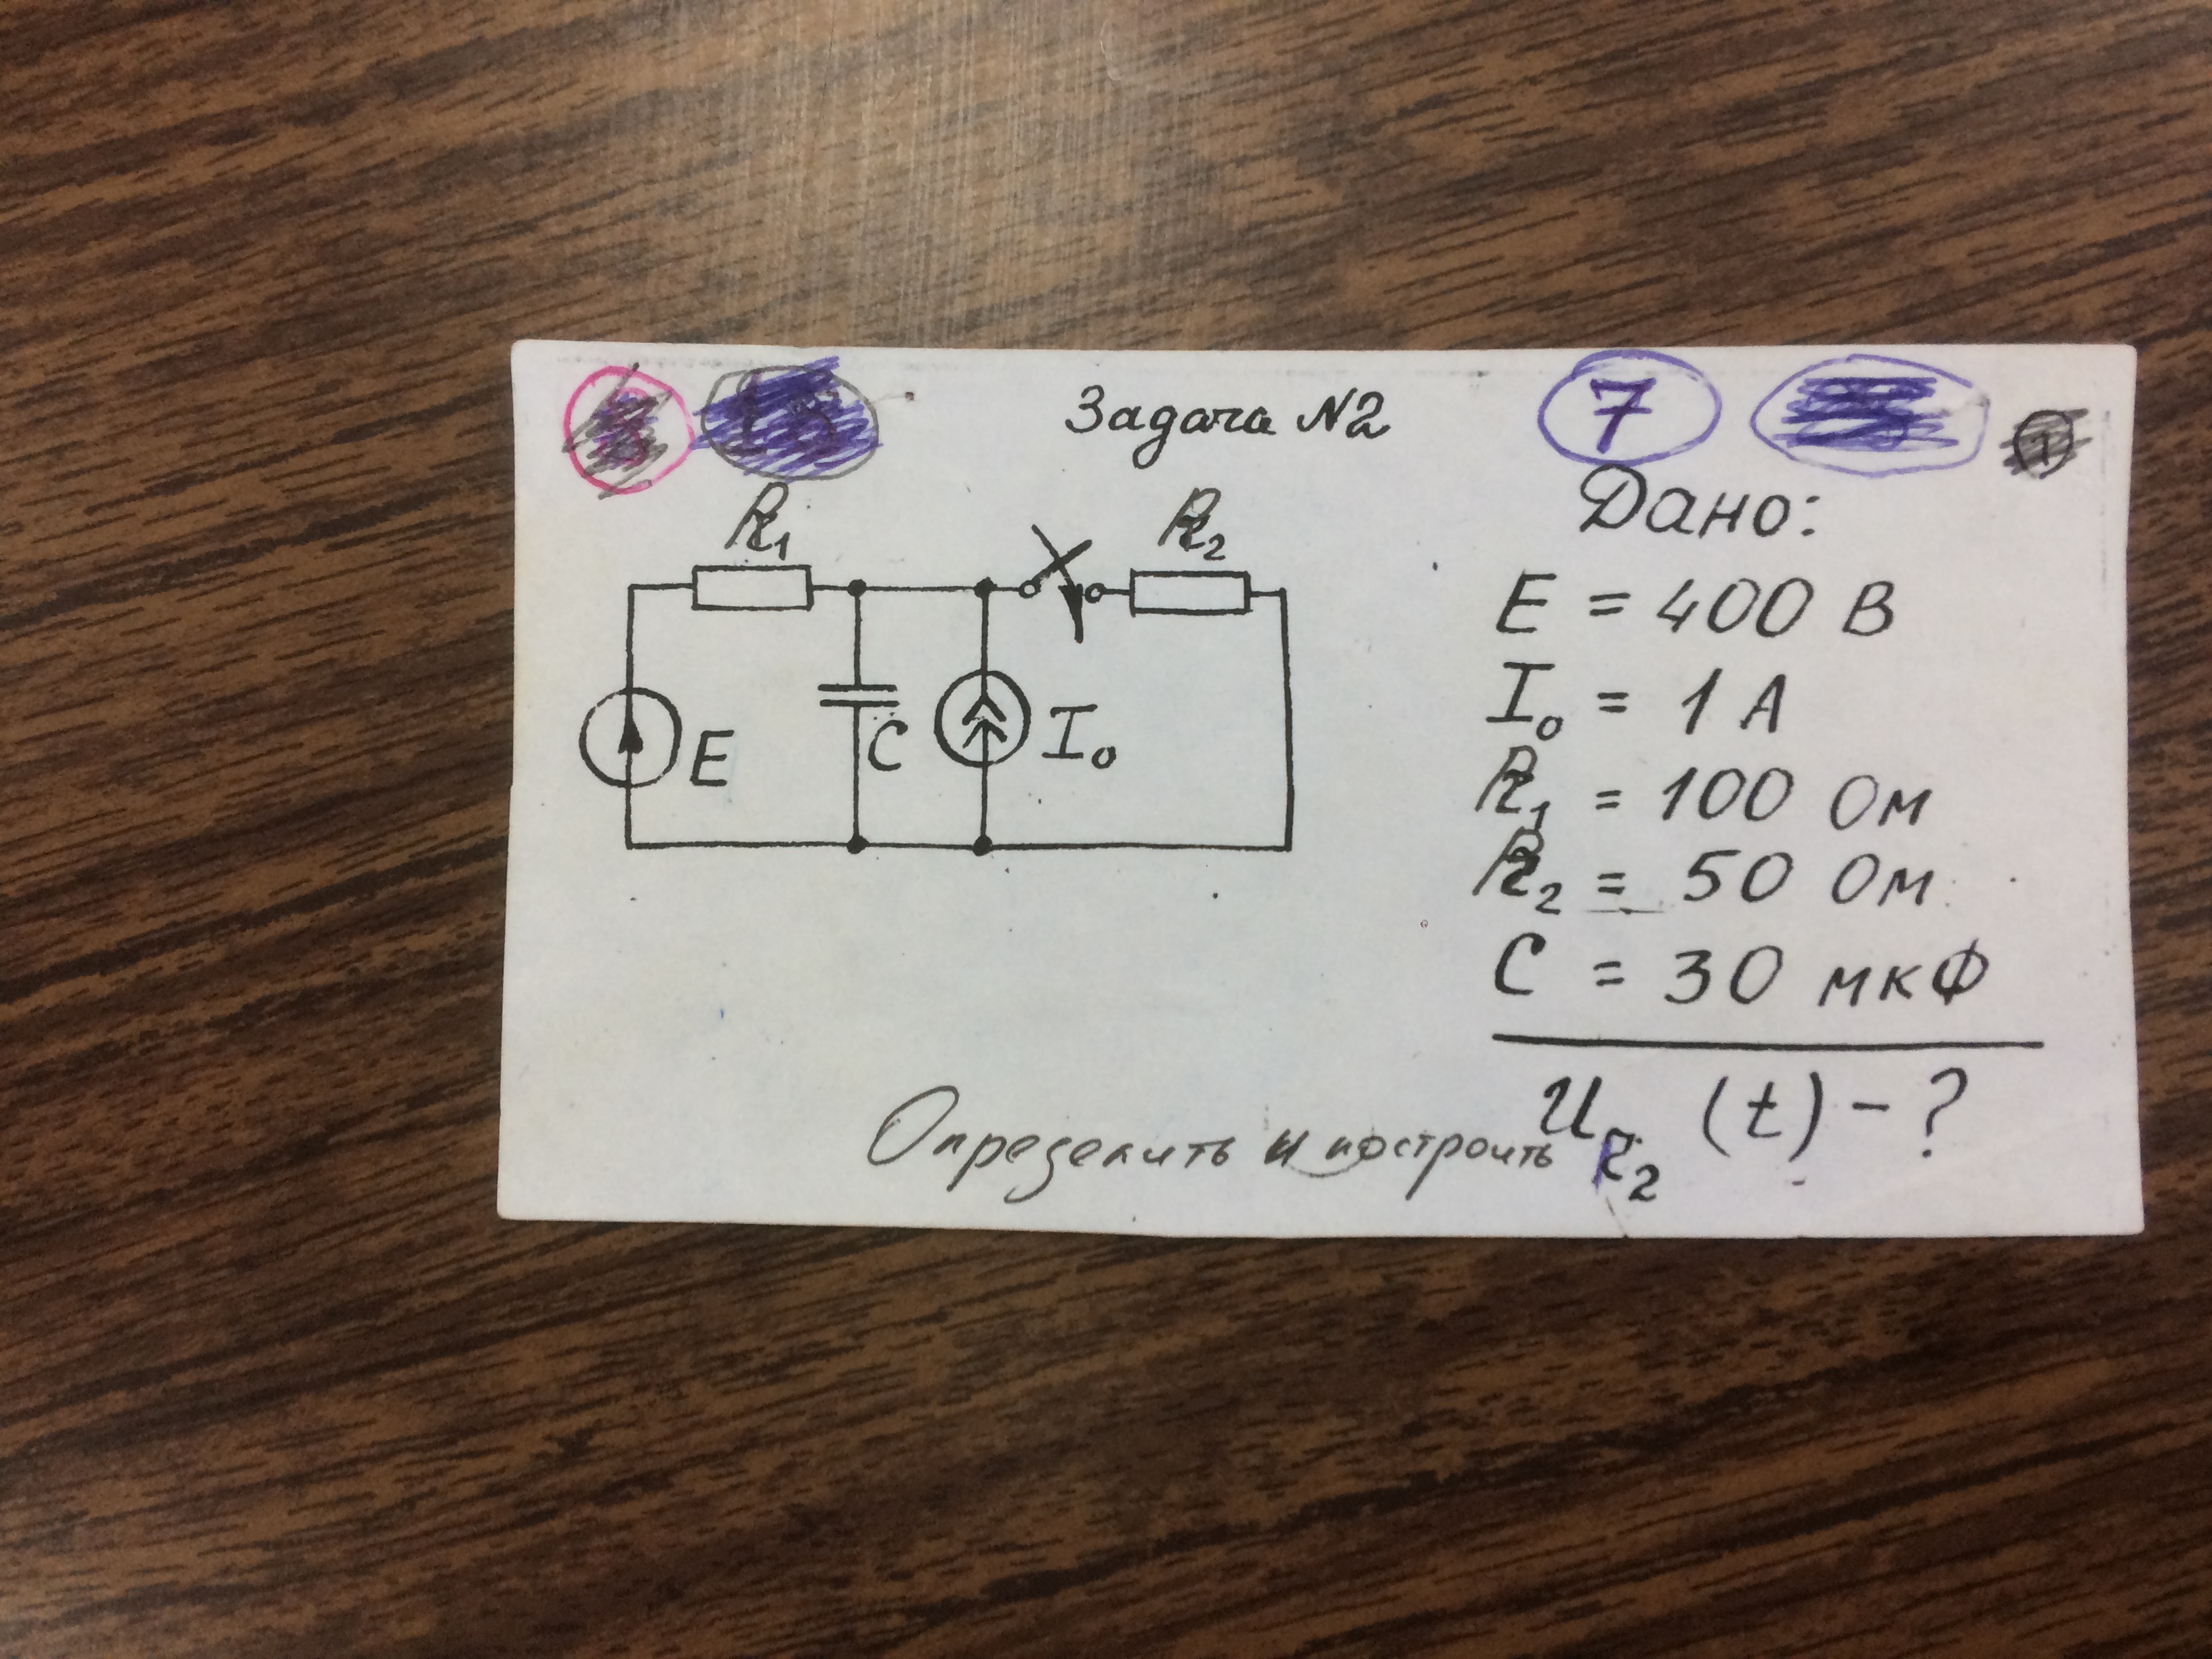 Задача №2
7
1
R₁
R₂
E
C
I₀
Дано:
E = 400 В
I₀ = 1 А
R₁ = 100 Ом
R₂ = 50 Ом
C = 30 мкФ
Определить и построить U_R₂ (t) - ?